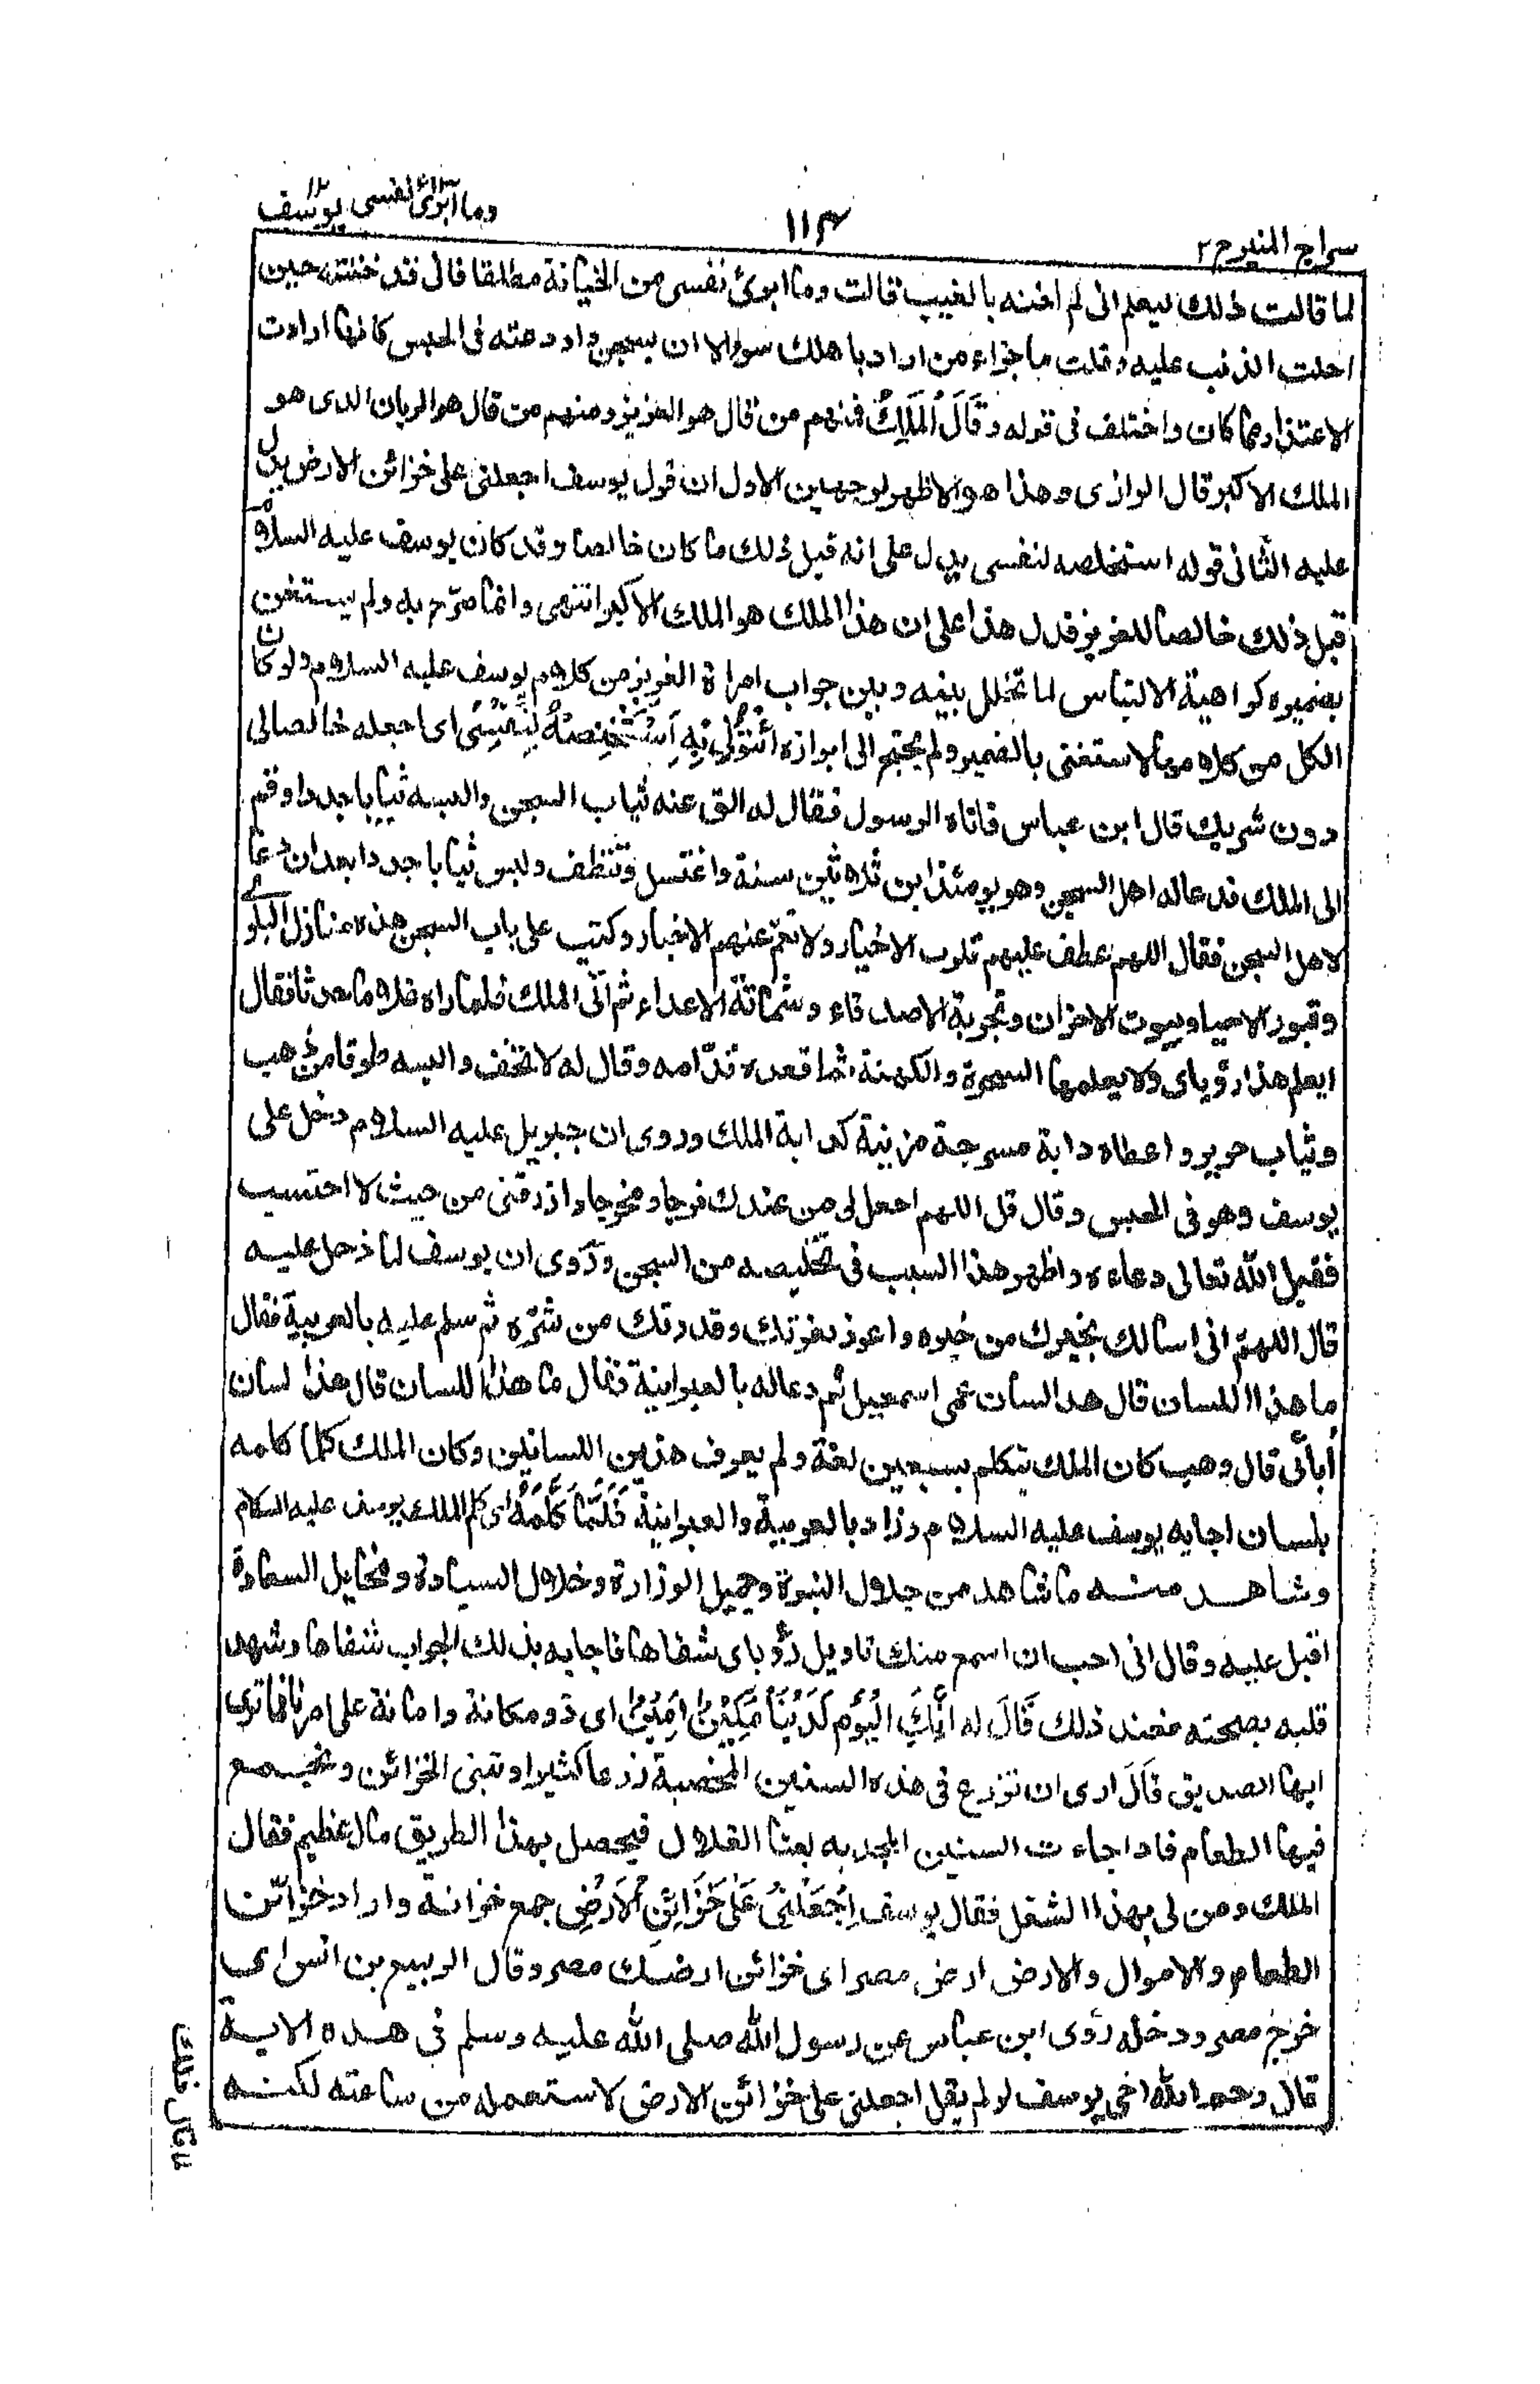 سراج المنير ج ٢
١١٣
وما ابرئ نفسى ١٣ يوسف ١٢
لما قالت ذلك ليعلم انى لم اخنه بالغيب قالت وما ابرئ نفسى من الخيانة مطلقا فانى قد خنته حين
احلت الذنب عليه وقلت ما جزاء من اراد باهلك سوءا الا ان يسجن واودعته فى الحبس كانها ارادت
الاعتذار مما كان واختلف فى قوله وَقَالَ الْمَلِكُ فمنهم من قال هو العزيز ومنهم من قال هو الريان الذى هو
الملك الاكبر قال الرازى وهذا هو الاظهر لوجهين الاول ان قول يوسف اجعلنى على خزائن الارض يدل
عليه الثانى قوله استخلصه لنفسى يدل على انه قبل ذلك ما كان خالصا وقد كان يوسف عليه السلام
قبل ذلك خالصا للعزيز فدل هذا على ان هذا الملك هو الملك الاكبر انتهى وانما صرّح به ولم يستغن
بضميره كراهية الالتباس لما تخلل بينه وبين جواب امراة العزيز من كلام يوسف عليه السلام ولو كان
الكل من كلامها لاستغنى بالضمير ولم يحتج الى ابرازه ائْتُوْنِى بِهٖ اَسْتَخْلِصْهُ لِنَفْسِىْ اى اجعله خالصا لى
دون شريك قال ابن عباس فاتاه الرسول فقال له الق عنه ثياب السجن والبسه ثيابا جددا وقم
الى الملك فدعا له اهل السجن وهو يومئذ ابن ثلاثين سنة واغتسل وتنظف ولبس ثيابا جددا بعد ان دعا
لاهل السجن فقال اللهم عطف عليهم قلوب الاخيار ولا تعمّ عنهم الاخبار وكتب على باب السجن هذه منازل البلوى
وقبور الاحياء وبيوت الاحزان وتجربة الاصدقاء وشماتة الاعداء ثم اتى الملك فلما راه غلاما حدثا فقال
ايعلم هذا رؤياى ولا يعلمها السحرة والكهنة ثم اقعده قدّامه وقال له لا تخف والبسه طوقا من ذهب
وثياب حرير واعطاه دابة مسرجة مزينة كدابة الملك وروى ان جبريل عليه السلام دخل على
يوسف وهو فى الحبس وقال قل اللهم اجعل لى من عندك فرجا ومخرجا وارزقنى من حيث لا احتسب
فقبل الله تعالى دعاءه واظهر هذا السبب فى تخليصه من السجن وروى ان يوسف لما دخل عليه
قال اللهمّ انى اسالك بخيرك من خيره واعوذ بعزتك وقدرتك من شرّه ثم سلم عليه بالعربية فقال
ما هذا اللسان قال هذا لسان عمى اسمعيل ثم دعا له بالعبرانية فقال ما هذا اللسان قال هذا لسان
أبائى قال وهب كان الملك يتكلم بسبعين لغة ولم يعرف هذين اللسانين وكان الملك كلما كلمه
بلسان اجابه يوسف عليه السلام وزاد بالعربية والعبرانية فَلَمَّا كَلَّمَهٗ اى كلم الملك يوسف عليه السلام
وشاهد منه ما شاهد من جلال النبوة وجميل الوزارة وخلال السيادة ومخايل السعادة
اقبل عليه وقال انى احب ان اسمع منك تاويل رؤياى شفاها فاجابه بذلك الجواب شفاها وشهد
قلبه بصحته فعند ذلك قَالَ له اِنَّكَ الْيَوْمَ لَدَيْنَا مَكِيْنٌ اَمِيْنٌ اى ذو مكانة وامانة على امرنا فما ترى
ايها الصديق قَالَ ارى ان تزرع فى هذه السنين المخصبة زرعا كثيرا وتبنى الخزائن وتجمع
فيها الطعام فاذا جاءت السنين المجدبة بعنا الغلال فيحصل بهذا الطريق مال عظيم فقال
الملك ومن لى بهذا الشغل فقال يوسف اجْعَلْنِىْ عَلٰى خَزَائِنِ الْاَرْضِ جمع خزانة واراد خزائن
الطعام والاموال والارض ارض مصر اى خزائن ارضك مصر وقال الربيع بن انس اى
خرج مصر ودخله روى ابن عباس عن رسول الله صلى الله عليه وسلم فى هذه الاية
قال رحم الله اخى يوسف لو لم يقل اجعلنى على خزائن الارض لاستعمله من ساعته لكنه